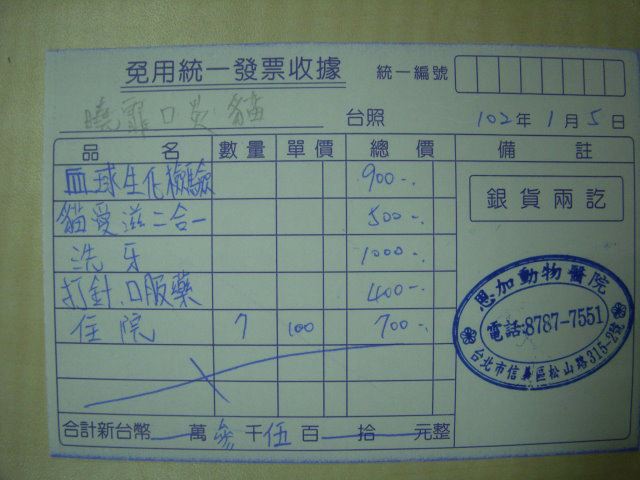 免用統一發票收據 統一編號
曉霏口炎貓 台照 102年1月5日
品名 數量 單價 總價 備註
血球生化檢驗 900-.
貓愛滋二合一 500-.
洗牙 1000-.
打針.口服藥 400-.
住院 7 100 700-.
銀貨兩訖
恩加動物醫院
電話:8787-7551
台北市信義區松山路315-2號
合計新台幣 萬 參千伍百 拾 元整